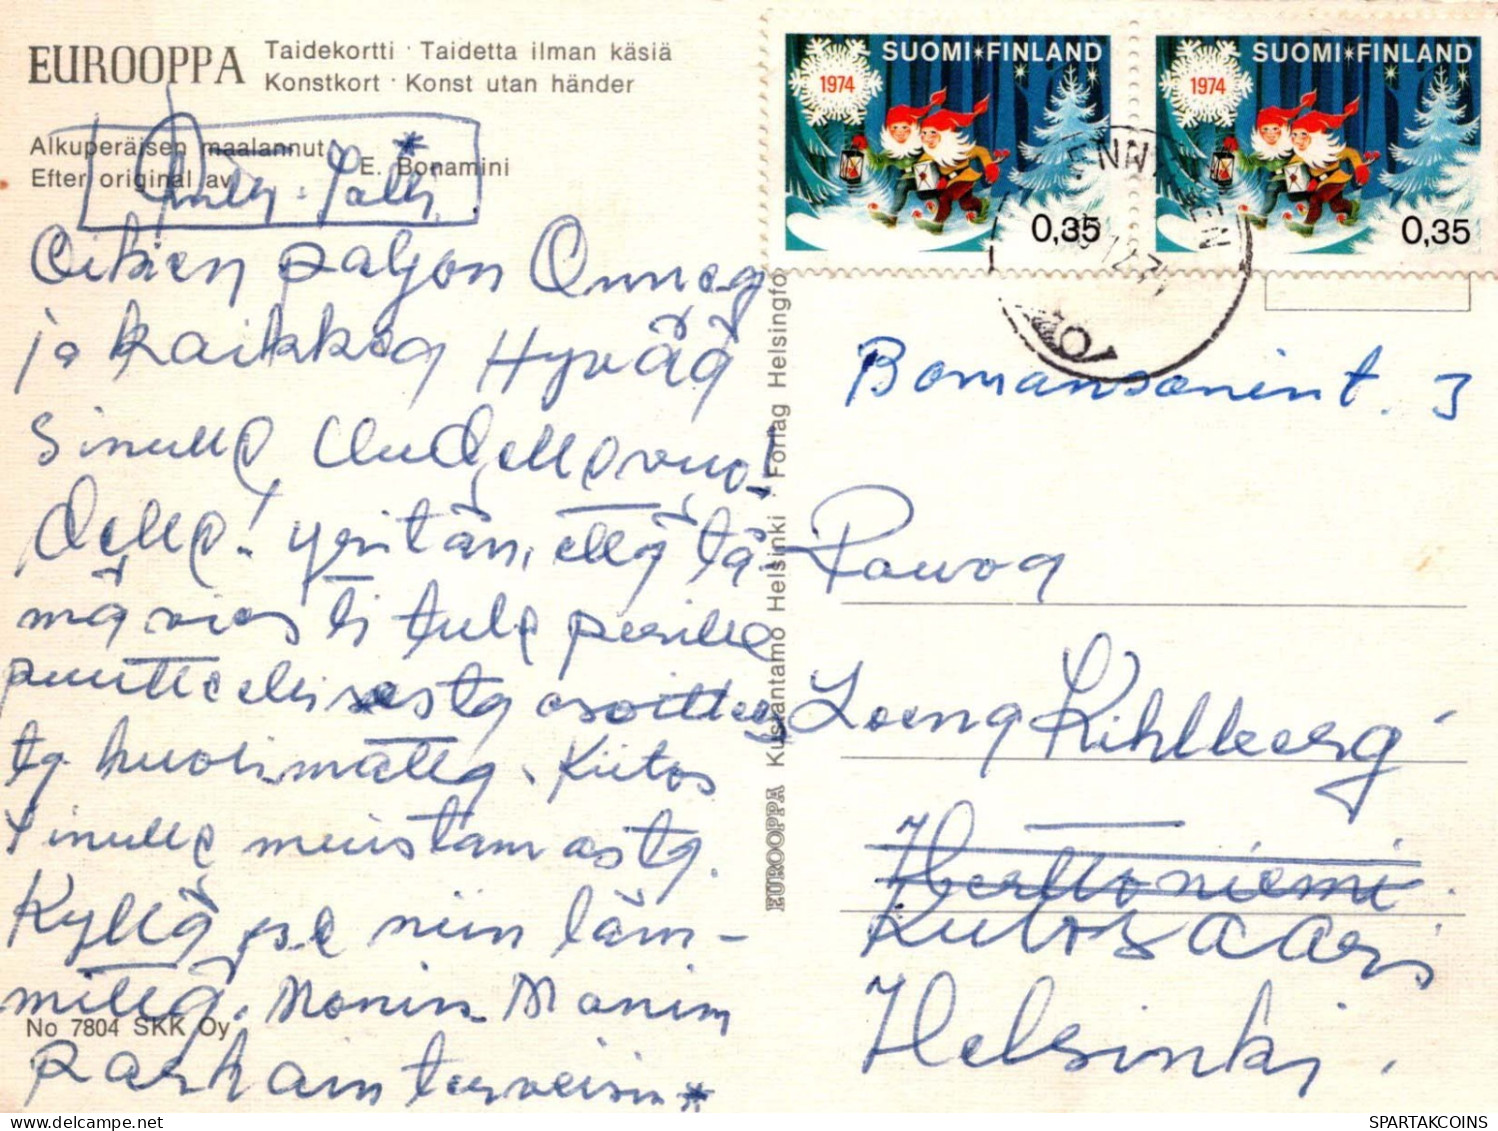 EUROOPPA
Taidekortti · Taidetta ilman käsiä
Konstkort · Konst utan händer
Alkuperäisen maalannut
Efter original av
E. Bonamini
Oikien paljon Onnea
ja kaikkea Hyvää
Sinulle Uudellevuo-
delle! yritän, että tä-
mä viesti tulee perille
puutteellisesta osoittees
ta huolimatta. Kiitos
Sinulle muistamasta.
Kyllä se niin läm-
mitti. Monin Monin
Parhain terveisin *
No 7804 SKK Oy
EUROOPPA Kustantamo Helsinki · Förlag Helsingfo
SUOMI*FINLAND
1974
0,35
SUOMI*FINLAND
1974
0,35
Bomansonint. 3
Rouva
Leena Kihlberg
Herttoniemi.
Kulosaari
Helsinki.
SPARTAKSCOINS.COM